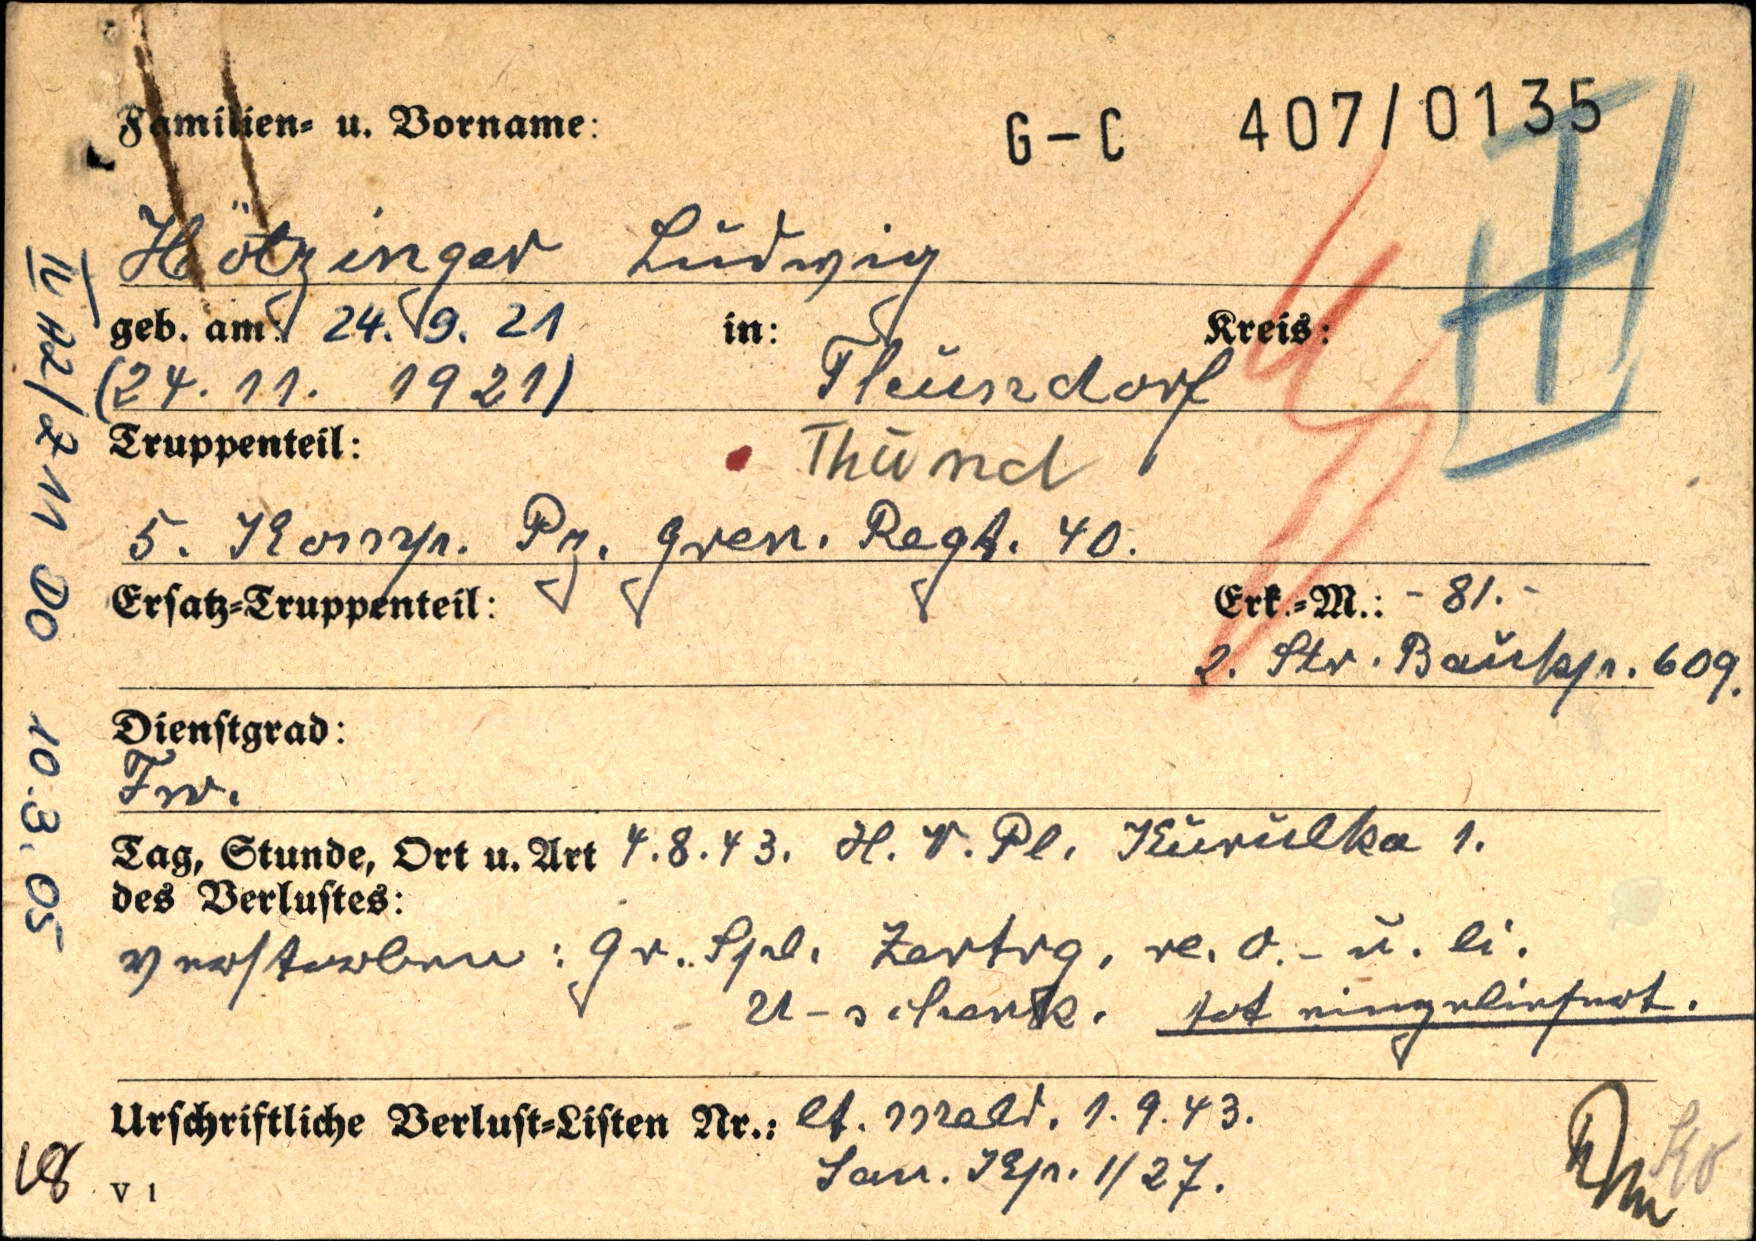 Familien- u. Vorname:
G-C 407/0135
Hötzinger Ludwig
geb. am: 24. 9. 21 in: Kreis:
(24. 11. 1921) Theundorf
Truppenteil: Thünd
5. Komp. Pz. gren. Regt. 40.
Ersatz-Truppenteil: Erk.-M.: - 81. -
2. Str. Baukp. 609.
Dienstgrad:
Tag, Stunde, Ort u. Art 4.8.43. H. V. Pl. Kurulka 1.
des Verlustes:
verstorben: Gr. Spl. Zertrg. re. O.- u. li.
U-schenk. tot eingeliefert.
Urschriftliche Verlust-Listen Nr.: lt. Meld. 1.9.43.
San. Kp. 1/27.
V 1
10.3.05